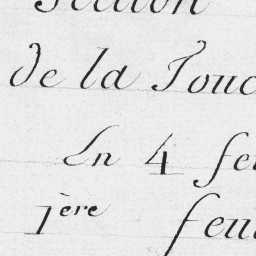 Section
de la Touc
En 4 feu
1ère feui